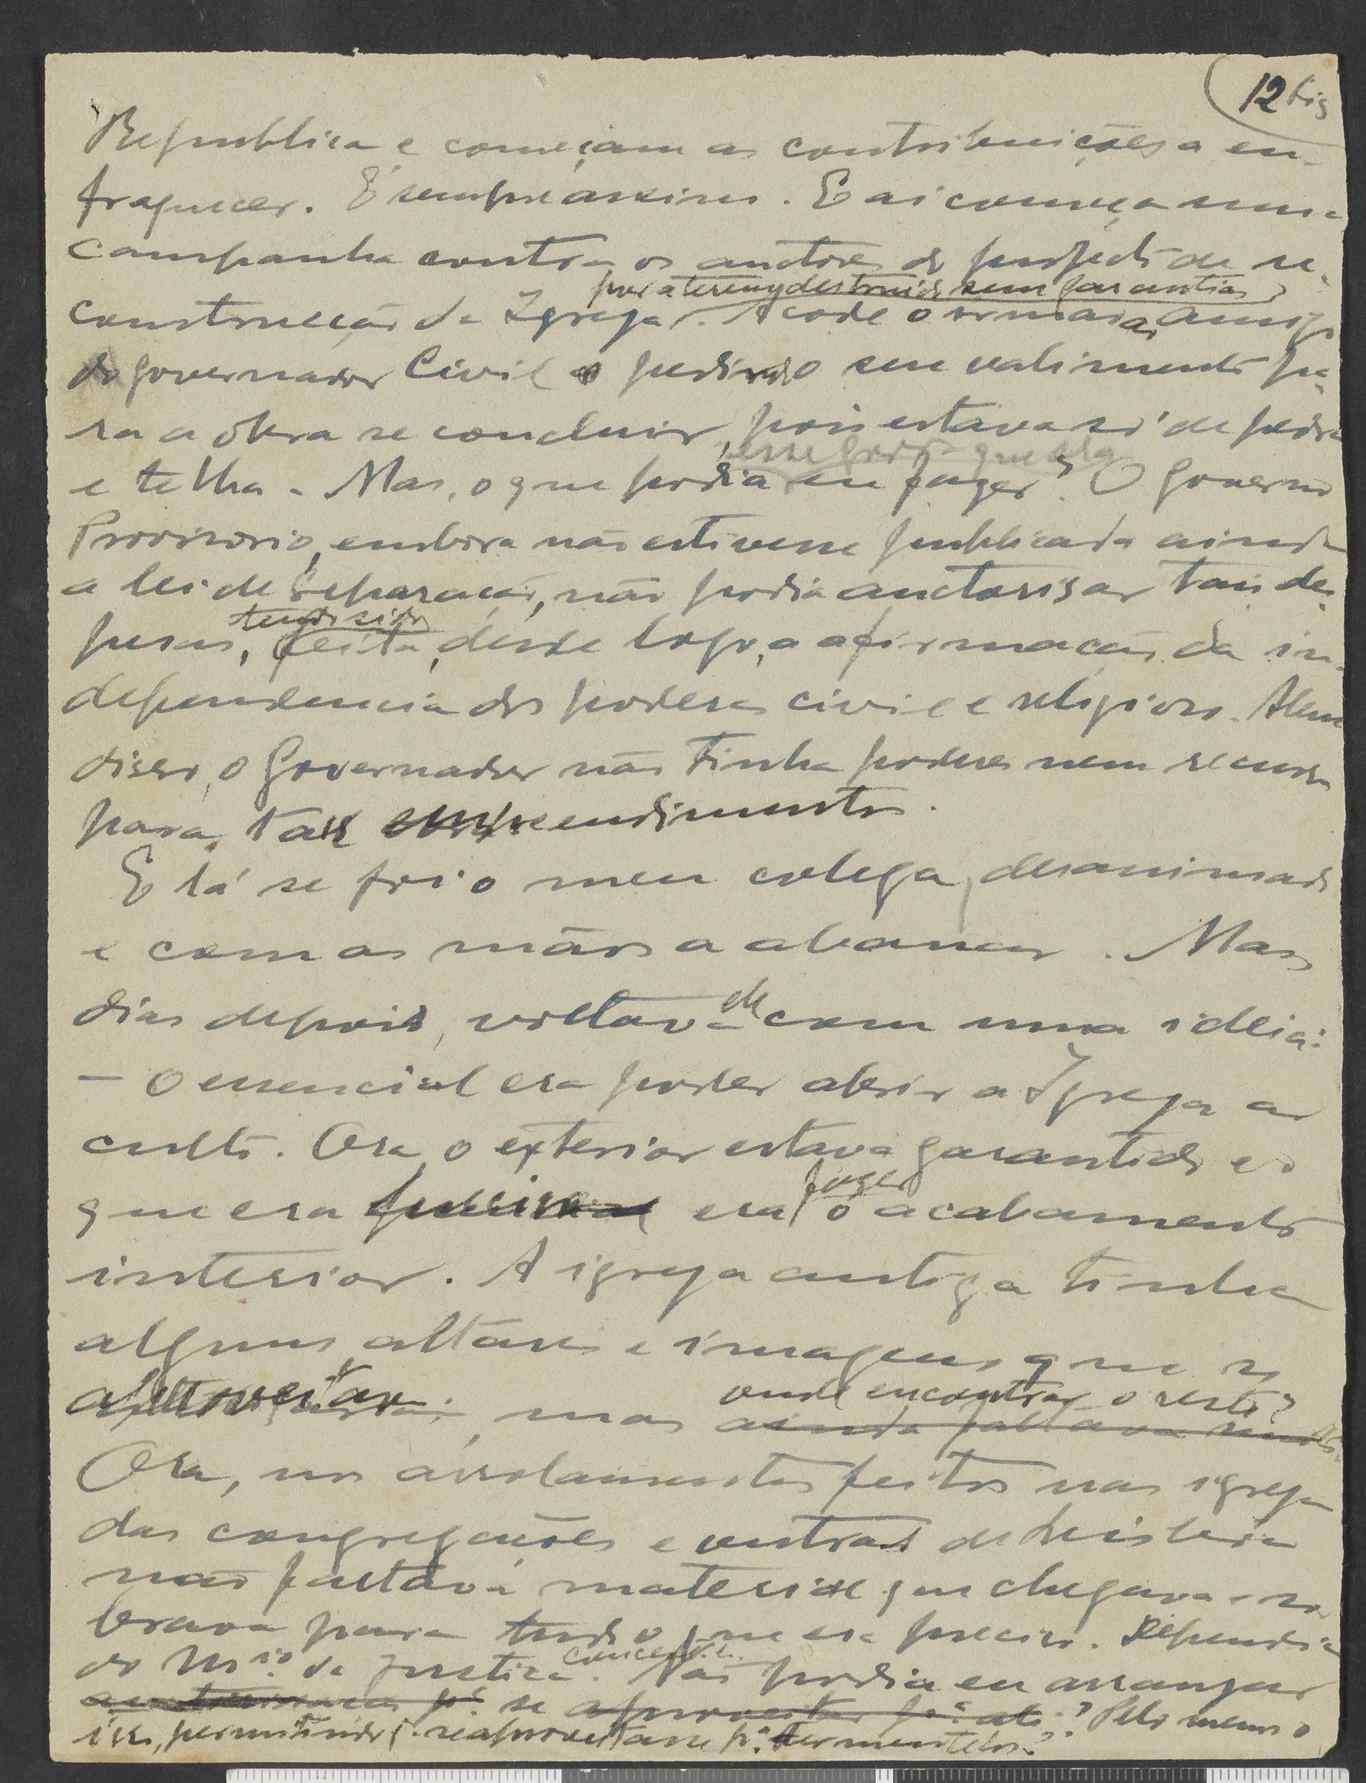 12 bis
Republica e começam as contribuições a en-
fraquecer. É sempre assim. E ai começa uma
campanha contra os auctores do projecto da re-
por a terem destruido sem garantias
construcção da Igreja. Acode o
do governador Civil pedindo seu valimento pa-
ra a obra se concluir, pois estava só de pedra
e telha. Mas, o que podia eu fazer? O Governo
Provisorio, embora não estivesse publicada ainda
a lei de Separação, não podia auctorisar tais des-
tendo sido
pesas, feita, desde logo, a afirmação da in-
dependencia dos poderes civil e religioso. Alem
disso, o Governador não tinha poderes nem recursos
para tais
E lá se foi o meu colega, desanimado
e com as mãos a abanar. Mas
dias depois, voltava com uma ideia:
— O essencial era poder abrir a Igreja ao
culto. Ora o exterior estava garantido e o
fazer
que era era o acabamento
interior. A igreja antiga tinha
alguns altares e imagens que se
onde encontrar o resto?
aproveitavam; mas ainda faltava
Ora, nos arrolamentos feitos nas igrejas
das congregações e outras de Lisboa
não faltava material que chegava e so-
brava para tudo que era preciso. Dependia
do Mº. da Justiça. Não podia eu arranjar
se aproveitar pª. Pelo menos o
isso, permitindo q. se aproveitasse pª.